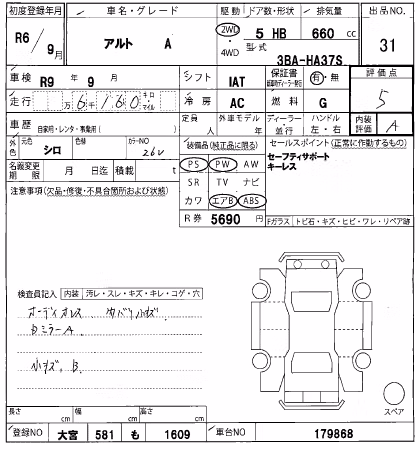 初度登録年月 車名・グレード 駆動 ドア数・形状 排気量 出品NO.
R6年 9月 アルト A 2WD ・4WD 5 HB 660 cc 31
型式 3BA-HA37S
車検 R9年 9月 シフト IAT 保証書 有・無 評価点
走行 万 6千 160 キロ マイル 冷房 AC 燃料 G 5
車歴 自家用・レンタ・事業用( ) 定員 人 外車モデル 年 ディーラー 並行 ハンドル 左・右 内装評価 A
外色 元色 シロ 色替 カラーNO 26U
装備品(純正品に限る) セールスポイント(正常に作動するもの)
名義変更期限 月 日迄 積載 t
PS PW AW
セーフティサポート
キーレス
注意事項(欠品・修復・不具合箇所および状態)
SR TV ナビ
カワ エアB ABS
R券 5690円
Fガラス トビ石・キズ・ヒビ・ワレ・リペア跡
検査員記入 内装 汚レ・スレ・キズ・キレ・コゲ・穴
オーディオレス
ミラーA
小キズ B
スペア
長さ cm 幅 cm 高さ cm
登録NO 大宮 581 も 1609 車台NO 179868